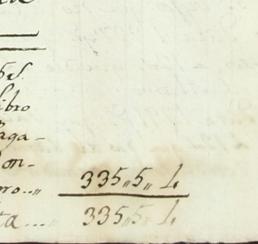 libro
aga-
on-
ro..„ 335„5„ L
ta... 335„5„ L